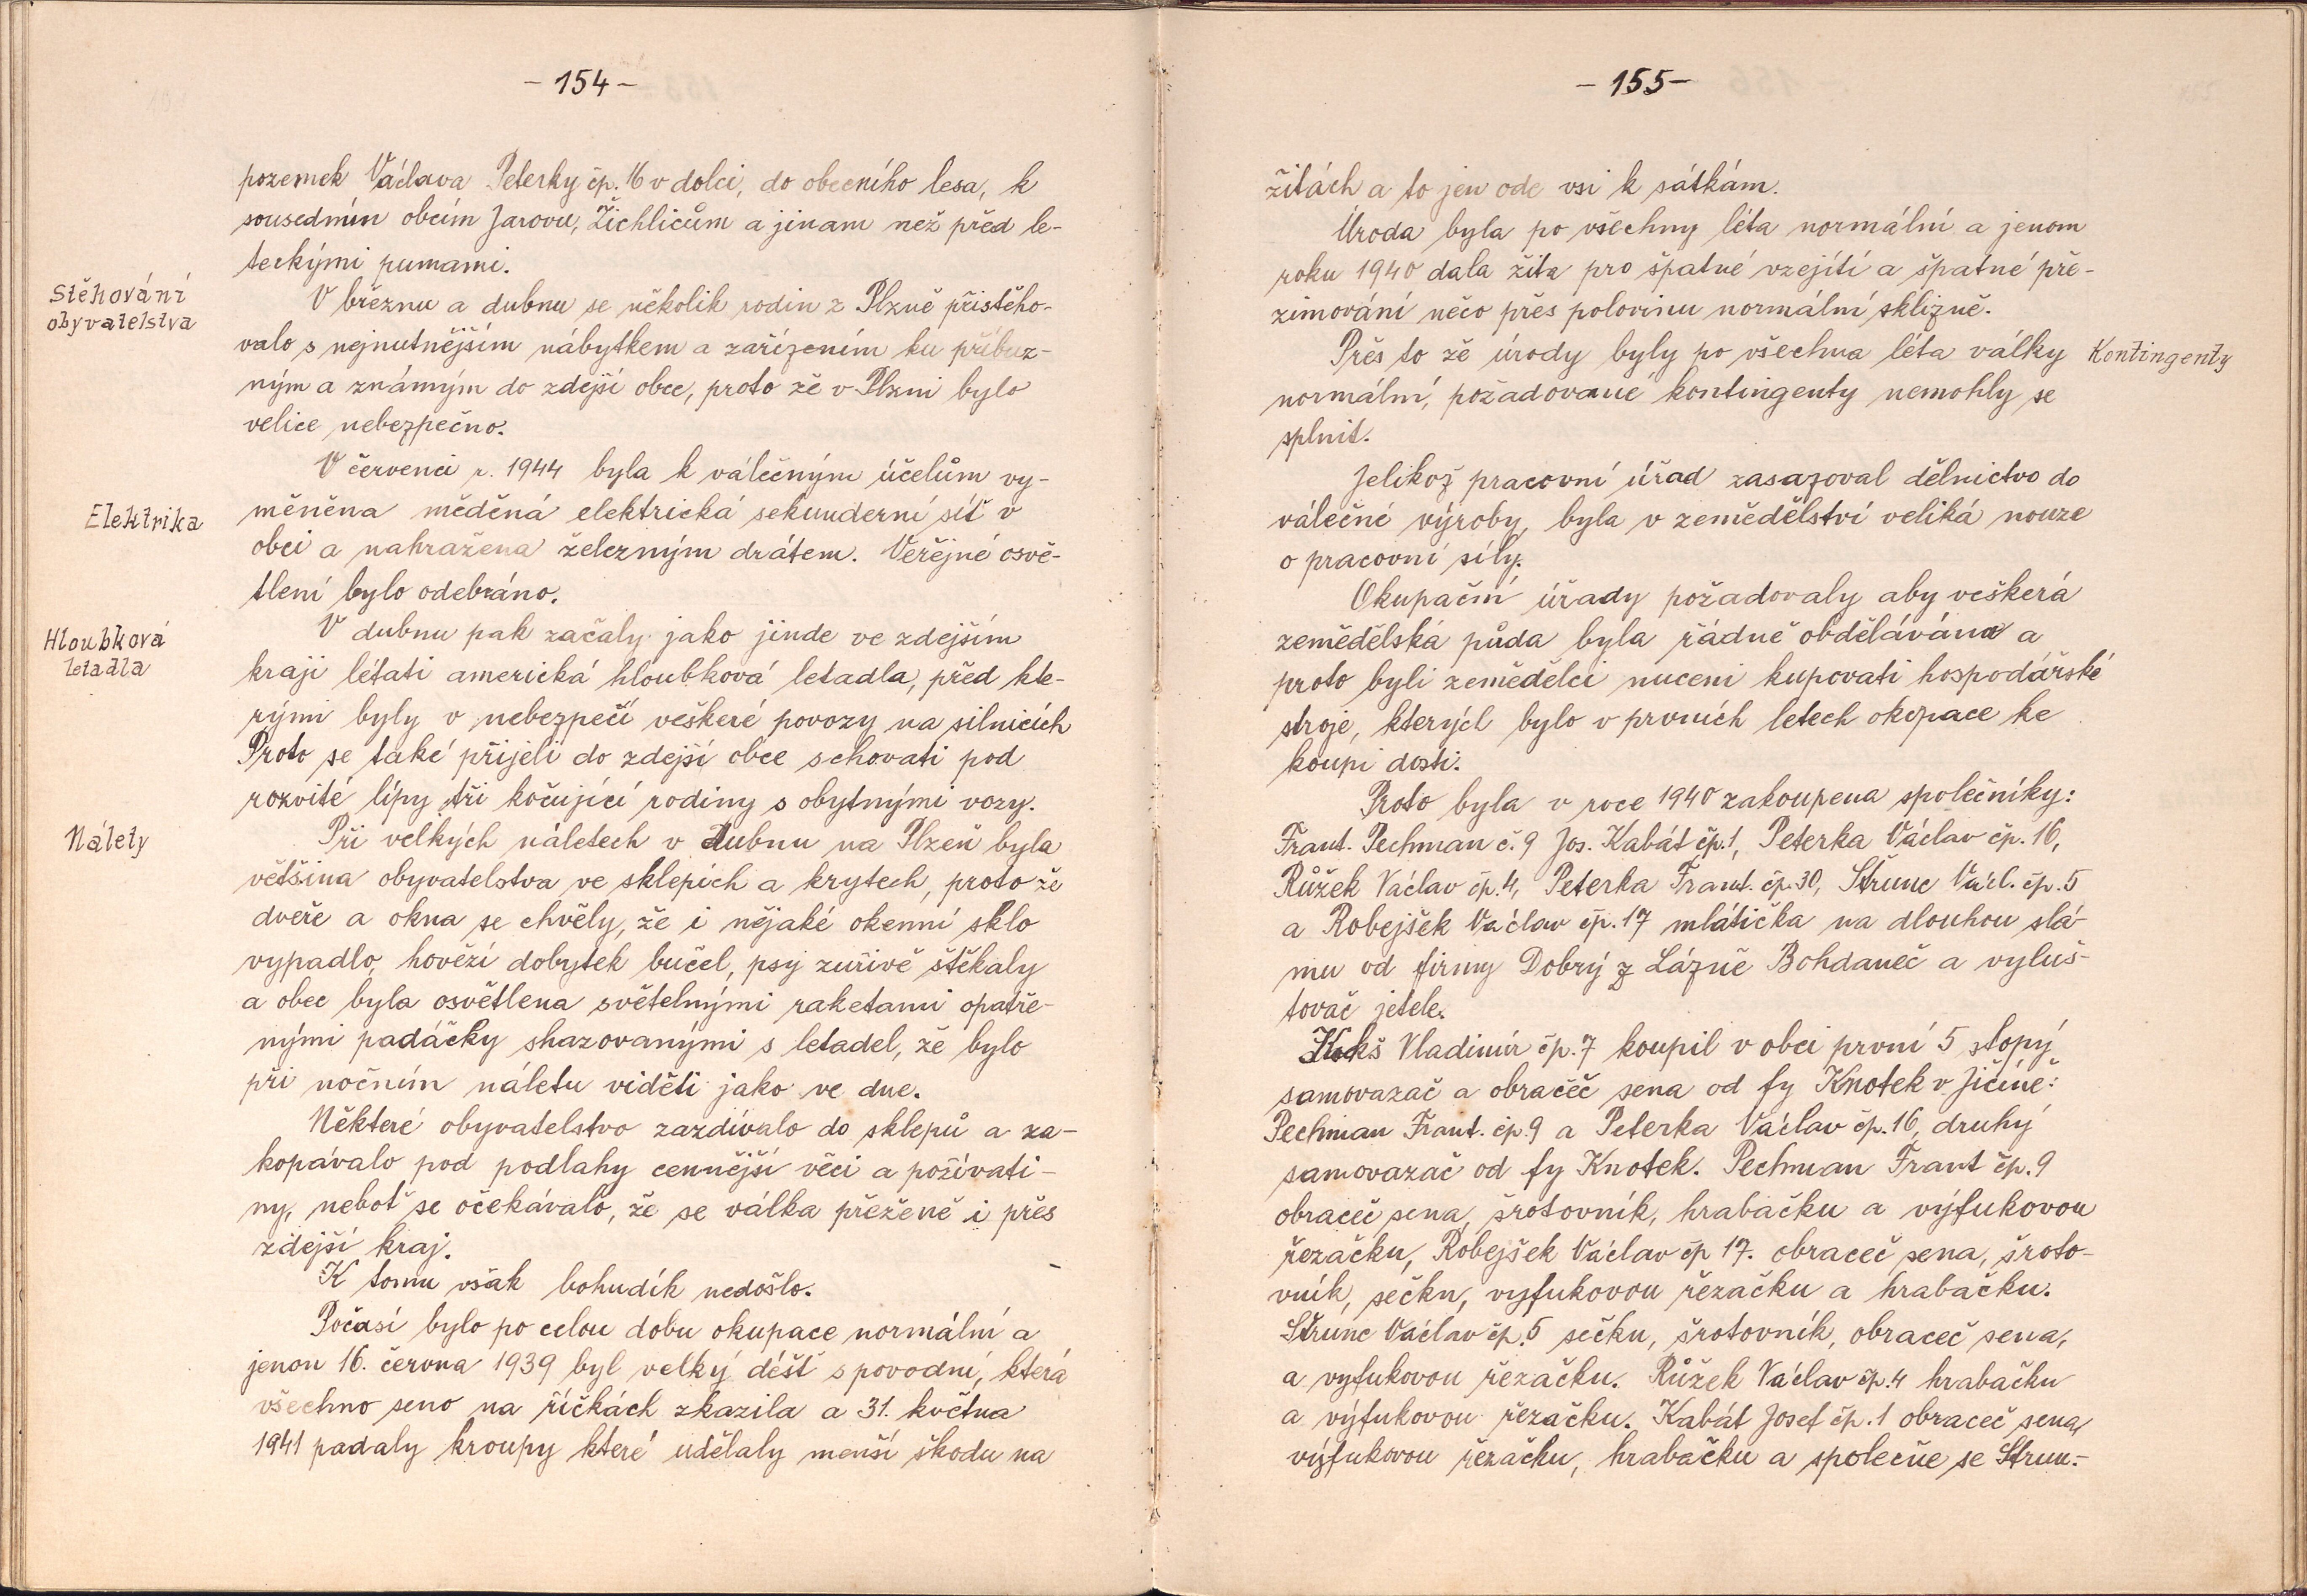 - 154 -
pozemek Václava Peterky čp. 16 v dolci, do obecního lesa, k
sousedním obcím Jarovu, Žichlicům a jinam než před le-
teckými pumami.
Stěhování
obyvatelstva
V březnu a dubnu se několik rodin z Plzně přistěho-
valo s nejnutnějším nábytkem a zařízením ku příbuz-
ným a známým do zdejší obce, proto že v Plzni bylo
velice nebezpečno.
V červenci r. 1944 byla k válečným účelům vy-
Elektrika
měněna měděná elektrická sekunderní síť v
obci a nahražena železným drátem. Veřejné osvě-
tlení bylo odebráno.
Hloubková
letadla
V dubnu pak začaly jako jinde ve zdejším
kraji létati americká hloubková letadla, před kte-
rými byly v nebezpečí veškeré povozy na silnicích
Proto se také přijeli do zdejší obce schovati pod
rozvité lípy tři kočující rodiny s obytnými vozy.
Nálety
Při velkých náletech v dubnu na Plzeň byla
většina obyvatelstva ve sklepích a krytech, proto že
dveře a okna se chvěly, že i nějaké okenní sklo
vypadlo, hovězí dobytek bučel, psy zuřivě štěkaly
a obec byla osvětlena světelnými raketami opatře-
nými padáčky shazovanými s letadel, že bylo
při nočním náletu viděti jako ve dne.
Některé obyvatelstvo zazdívalo do sklepů a za-
kopávalo pod podlahy cennější věci a poživati-
ny, neboť se očekávalo, že se válka přežene i přes
zdejší kraj.
K tomu však bohudík nedošlo.
Počasí bylo po celou dobu okupace normální a
jenon 16. června 1939 byl velký déšť s povodní, která
všechno seno na říčkách zkazila a 31. května
1941 padaly kroupy které udělaly menší škodu na
- 155 -
žitách a to jen ode vsi k sátkám.
Úroda byla po všechny léta normální a jenom
roku 1940 dala žita pro špatné vzejítí a špatné pře-
zimování něco přes polovinu normální sklizně.
Přes to že úrody byly po všechna léta války
Kontingenty
normální, požadované kontingenty nemohly se
splnit.
Jelikož pracovní úřad zasazoval dělnictvo do
válečné výroby, byla v zemědělství veliká nouze
o pracovní síly.
Okupační úřady požadovaly aby veškerá
zemědělská půda byla řádně obdělávána a
proto byli zemědělci nuceni kupovati hospodářské
stroje, kterých bylo v prvních letech okupace ke
koupi dosti.
Proto byla v roce 1940 zakoupena společníky:
Frant. Pechman č. 9 Jos. Kabát čp. 1, Peterka Václav čp. 16,
Růžek Václav čp. 4, Peterka Frant. čp. 30, Štrunc Václ. čp. 5
a Robejšek Václav čp. 17 mlátička na dlouhou slá-
mu od firmy Dobrý z Lázně Bohdaneč a vyluš-
tovač jetele.
Kokš Vladimír čp. 7 koupil v obci první 5 stopý
samovazač a obračeč sena od fy Knotek v Jičíně:
Pechman Frant. čp. 9 a Peterka Václav čp. 16, druhý
samovazač od fy Knotek. Pechman Frant čp. 9
obraceč sena, šrotovník, hrabačku a výfukovou
řezačku, Robejšek Václav čp 17. obraceč sena, šroto-
vník, sečku, vyfukovou řezačku a hrabačku.
Štrunc Václav čp. 5 sečku, šrotovník, obraceč sena,
a vyfukovou řezačku. Růžek Václav čp. 4 hrabačku
a výfukovou řezačku. Kabát Josef čp. 1 obraceč sena,
výfukovou řezačku, hrabačku a společně se Štrun-